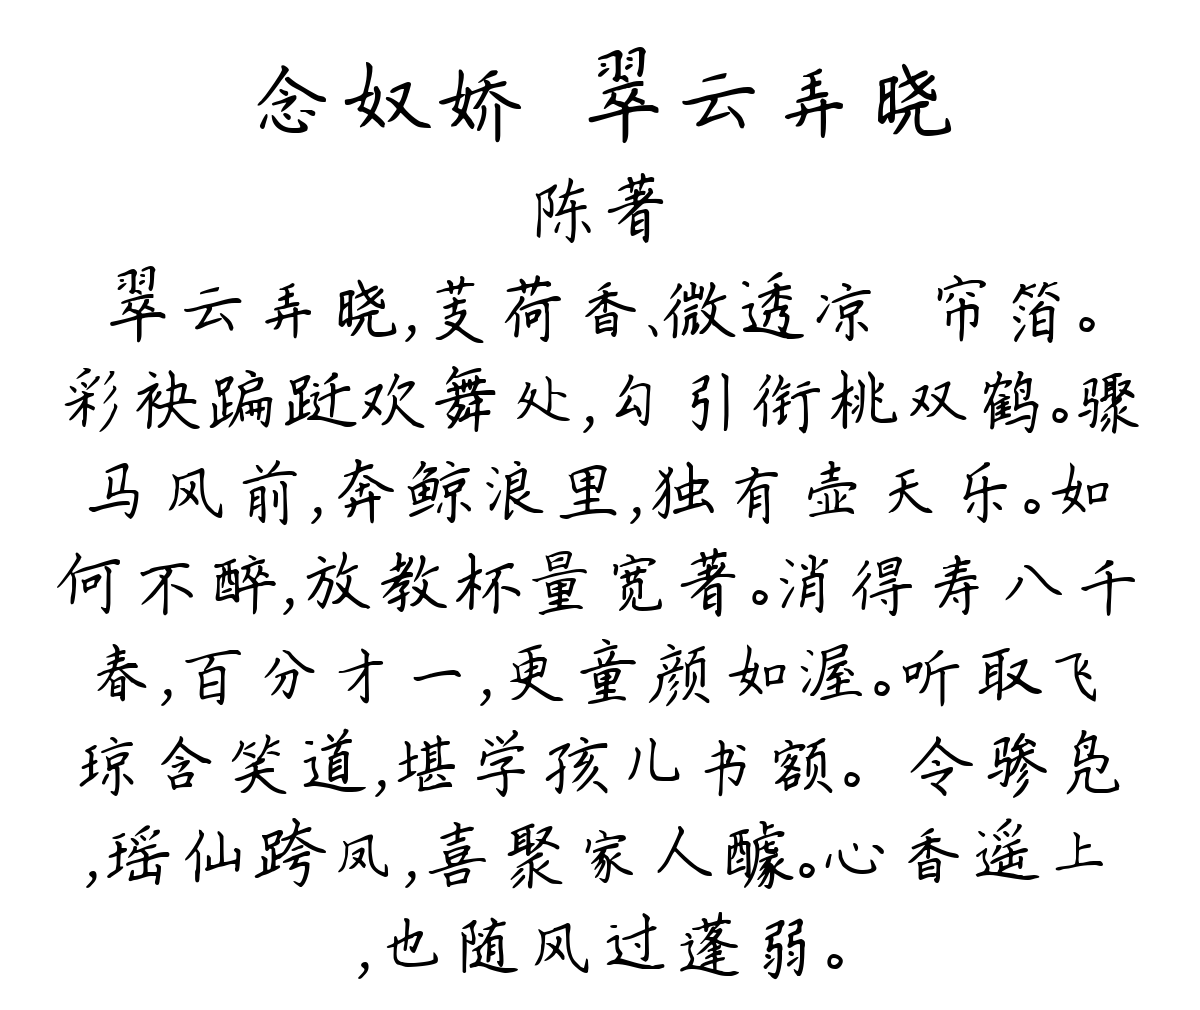 念奴娇 翠云弄晓
陈著
翠云弄晓,芰荷香、微透凉 帘箔。
彩袂蹁跹欢舞处,勾引衔桃双鹤。骤
马风前,奔鲸浪里,独有壶天乐。如
何不醉,放教杯量宽著。消得寿八千
春,百分才一,更童颜如渥。听取飞
琼含笑道,堪学孩儿书额。 令骖凫
,瑶仙跨凤,喜聚家人醵。心香遥上
,也随风过蓬弱。